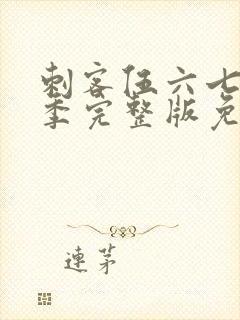 刺客伍六七
季完整版免
連茅